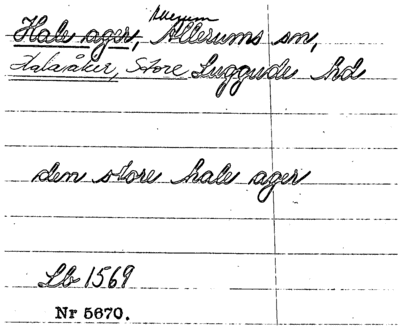 Hale ager, Allerums sn,
Halaåker, Store Luggude hd
den store hale ager
Lb 1569
Nr 5670.